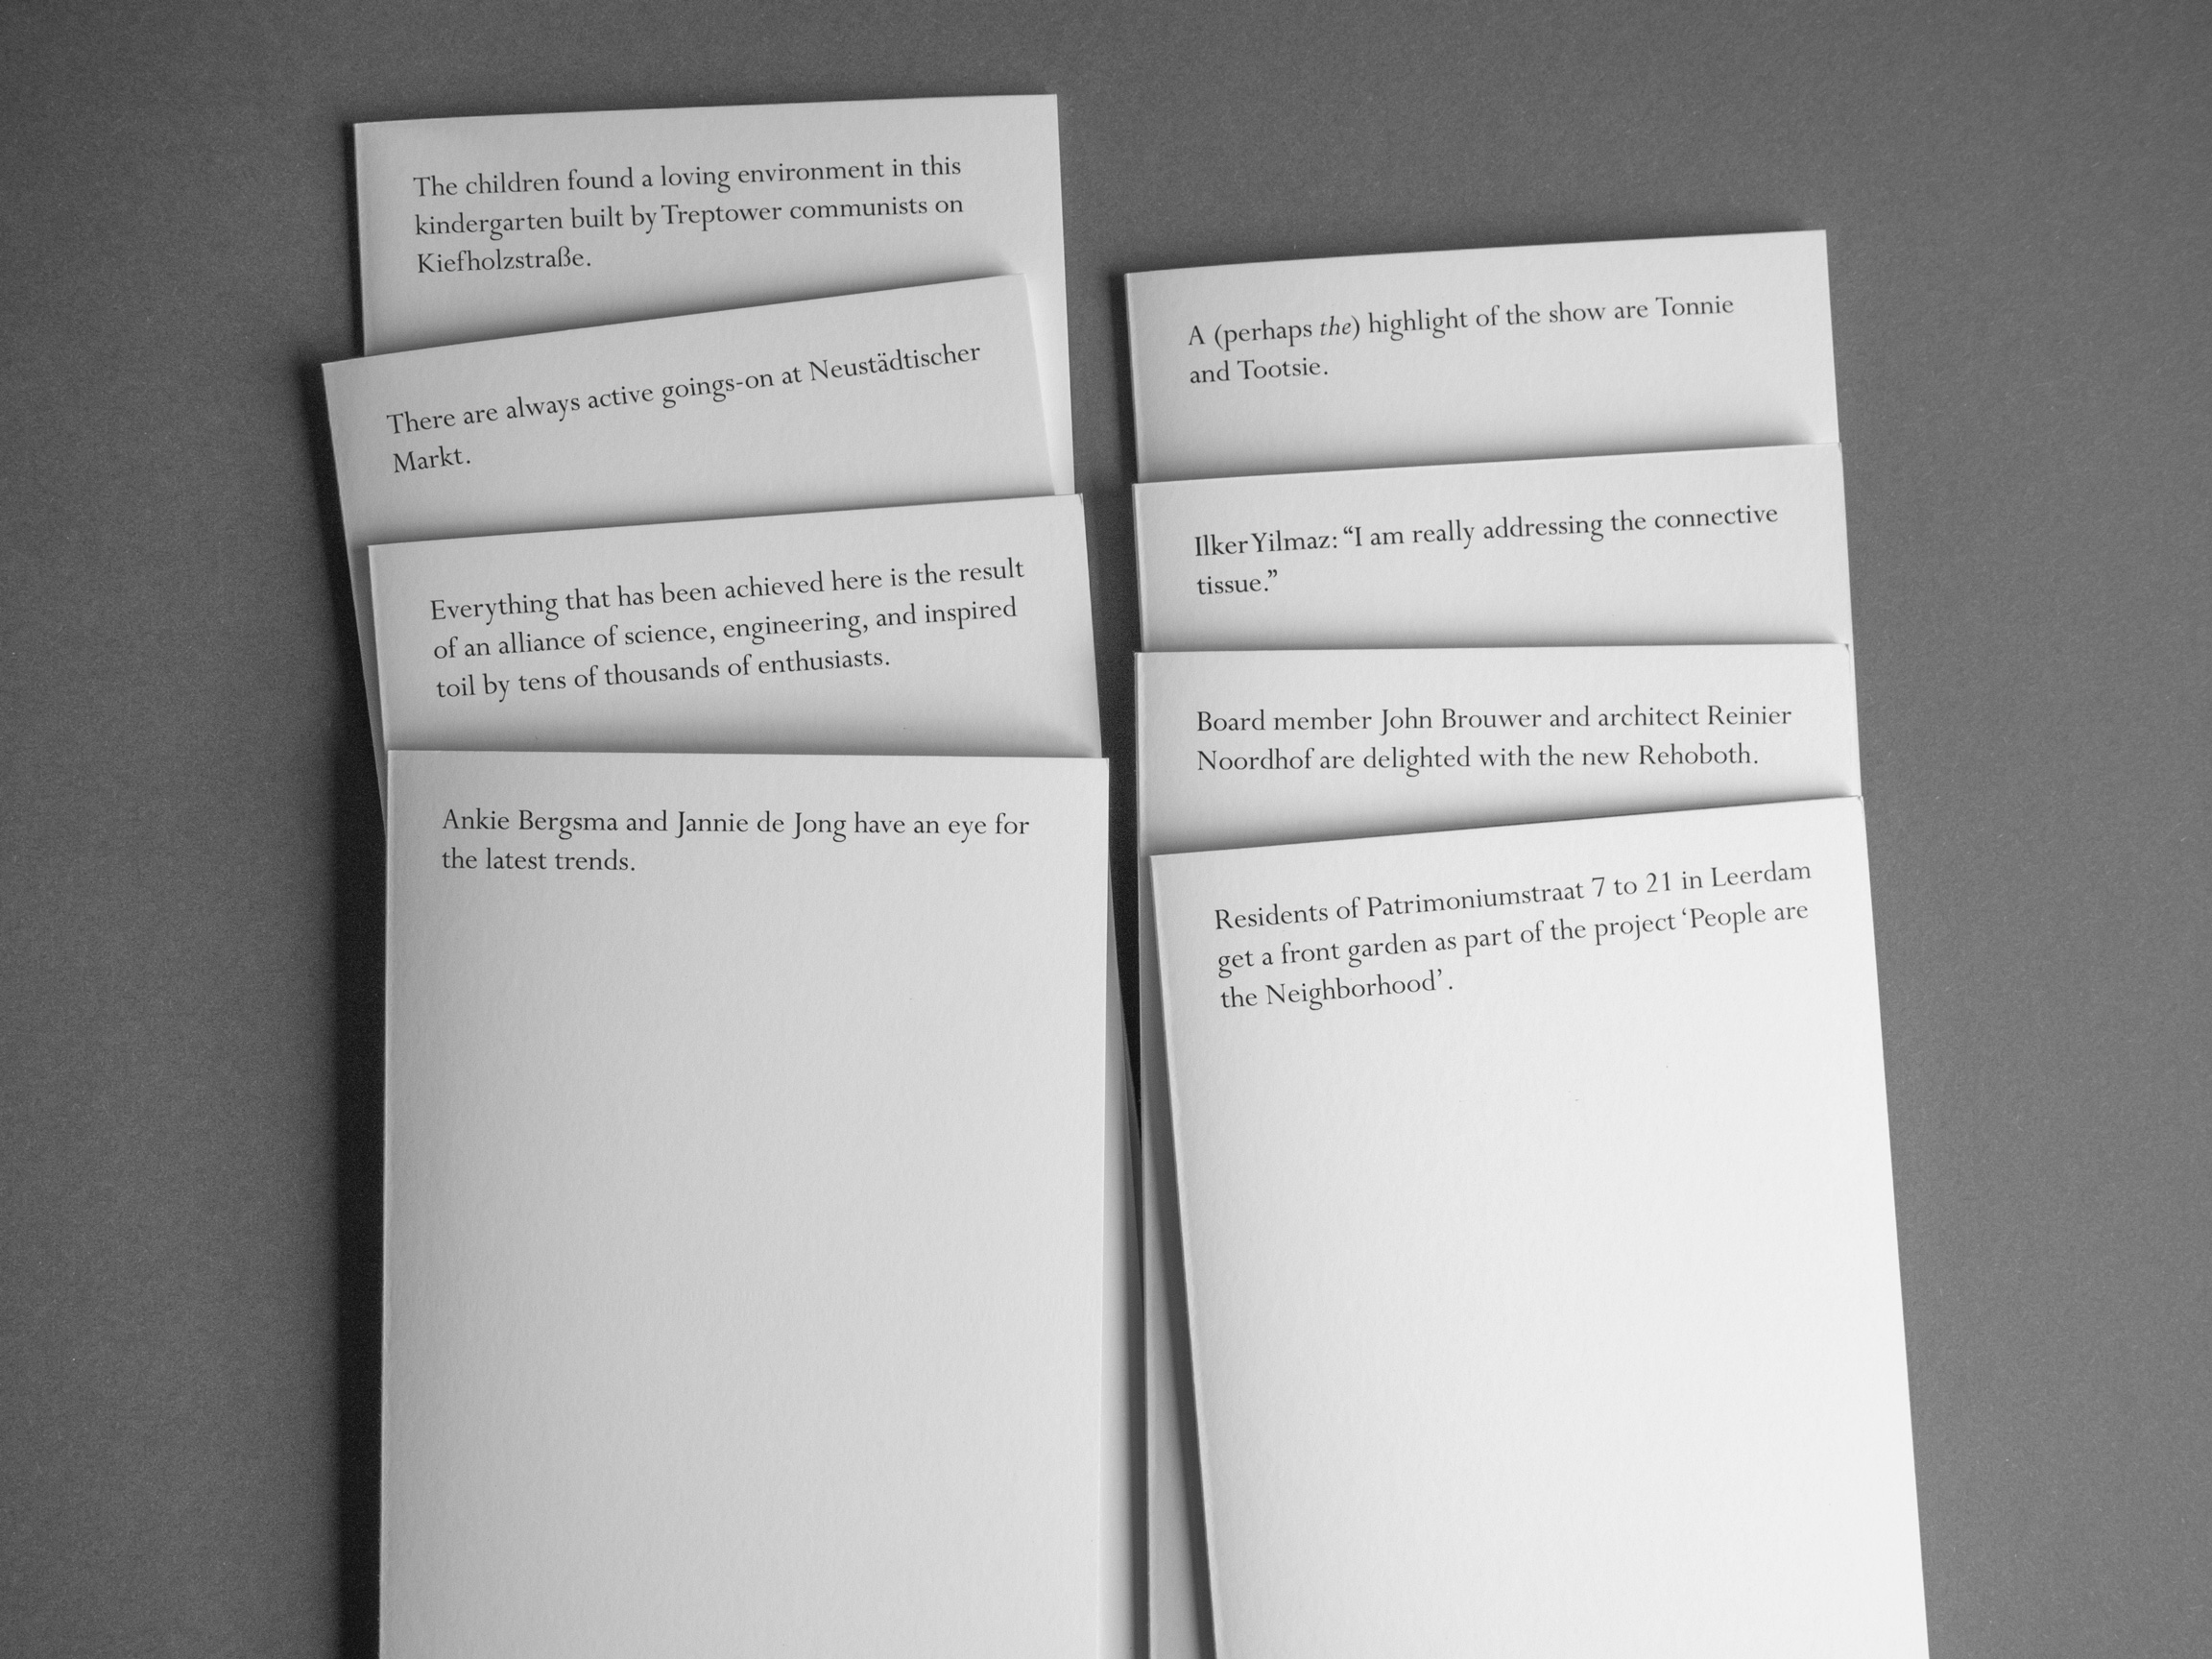 The children found a loving environment in this
kindergarten built by Treptower communists on
Kiefholzstraße.
There are always active goings-on at Neustädtischer
Markt.
Everything that has been achieved here is the result
of an alliance of science, engineering, and inspired
toil by tens of thousands of enthusiasts.
Ankie Bergsma and Jannie de Jong have an eye for
the latest trends.
A (perhaps the) highlight of the show are Tonnie
and Tootsie.
Ilker Yilmaz: “I am really addressing the connective
tissue.”
Board member John Brouwer and architect Reinier
Noordhof are delighted with the new Rehoboth.
Residents of Patrimoniumstraat 7 to 21 in Leerdam
get a front garden as part of the project ‘People are
the Neighborhood’.